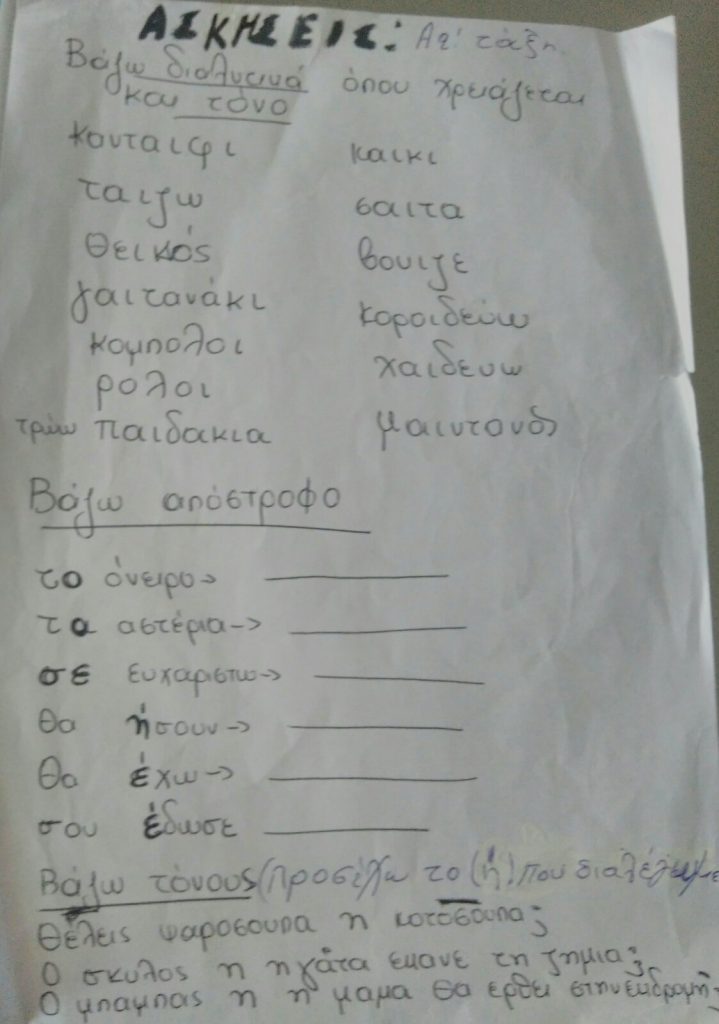 ΑΣΚΗΣΕΙΣ: Α&' τάξη.
Βάζω διαλυτικά όπου χρειάζεται
και τόνο
κουταιφι καικι
ταιζω σαιτα
θεικός βουιζε
γαιτανάκι κοροιδεύω
κομπολοι χαιδευω
ρολοι
τρώω παιδακια μαιντανός
Βάζω απόστροφο
το όνειρο->
τα αστέρια->
σε ευχαριστω->
θα ήσουν->
θα έχω->
σου έδωσε
Βάζω τόνους (Προσέχω το (ή) που διαλέγουμε
Θέλεις ψαροσουπα η κοτόσουπα;
Ο σκυλος η η γάτα εκανε τη ζημια;
Ο μπαμπας η η μαμα θα ερθει στην εκδρομή;